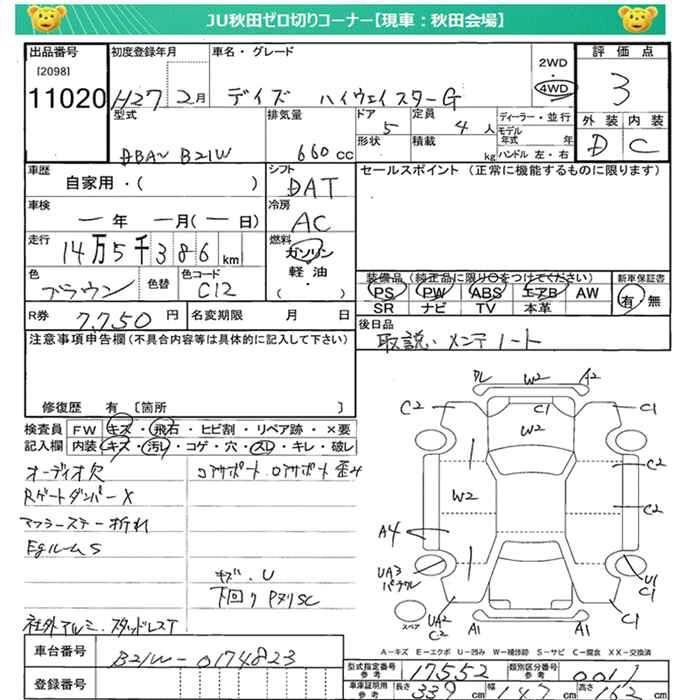 JU秋田ゼロ切りコーナー【現車：秋田会場】
出品番号 初度登録年月 車名・グレード 2WD・4WD 評価点
[2098]
11020 H27 2月 デイズ ハイウェイスターG 3
型式 排気量 ドア 定員 ディーラー・並行 外装 内装
DBA~ B21W 660cc 5 4人 モデル年式 年 D C
形状 積載 kg ハンドル 左・右
車歴 自家用・( ) シフト DAT セールスポイント (正常に機能するものに限ります)
車検 一年 一月(一日) 冷房 AC
走行 14万5千386km 燃料 ガソリン 軽油 ( )
色 ブラウン 色替 色コード C12
装備品 (純正品に限り○をつけてください) 新車保証書
PS PW ABS エアB AW 有・無
SR ナビ TV 本革
R券 7,750円 名変期限 月 日 後日品
取説、メンテノート
注意事項申告欄(不具合内容等は具体的に記入して下さい)
修復歴 有 〔箇所 〕
検査員 FW キズ・飛石・ヒビ割・リペア跡・×要
記入欄 内装 キズ・汚レ・コゲ・穴・スレ・キレ・破レ
オーディオ欠 コアサポート、ロアサポート歪み
Rゲートダンパー×
マフラーステー折れ
EgルームS
キズ、U
下回り PタリSC
社外アルミ、スタッドレスT
車台番号 B21W-0174823
登録番号
W2 A2
C2 C1 C1
W2
C2
W2 C2
A4
UA3
U1
C1
UA2
C2 A1 A1 C1
スペア
A-キズ E-エクボ U-凹み W-補修跡 S-サビ C-腐食 XX-交換済
型式指定番号 参考 17552 類別区分番号 参考 0011
車庫証明用 参考 長さ 339cm 幅 147cm 高さ 162cm